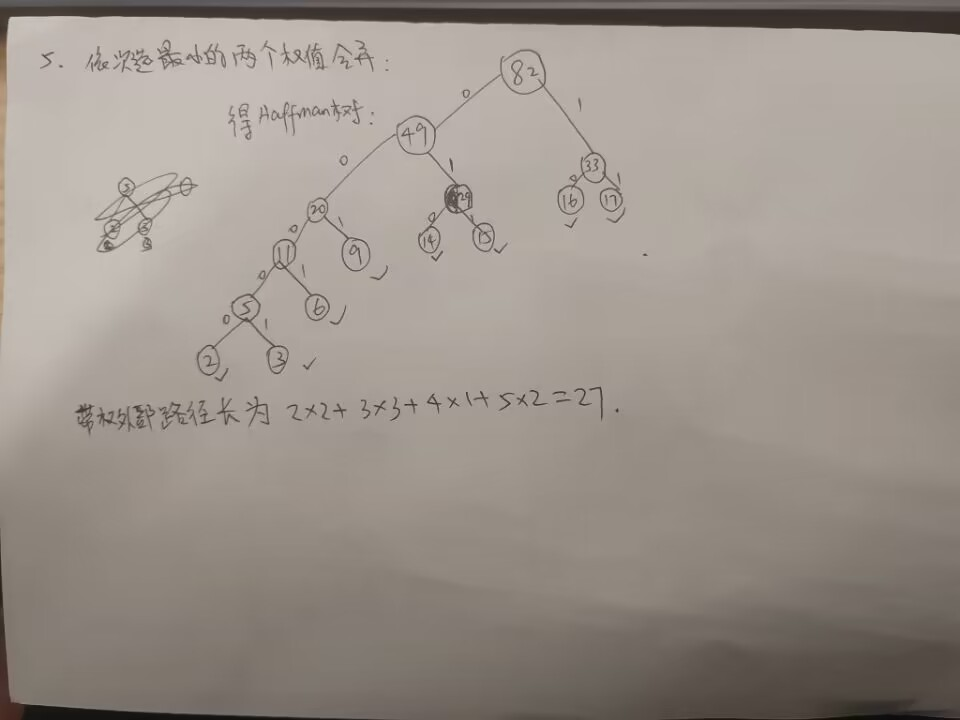 5. 依次选最小的两个权值合并:
得Haffman树:
82
0 1
49
0 1
33
0 1
16 17
20
0 1
29
0 1
14 15
11
0 1
9
5
0 1
6
2 3
带权外部路径长为 2×2+3×3+4×1+5×2=27.